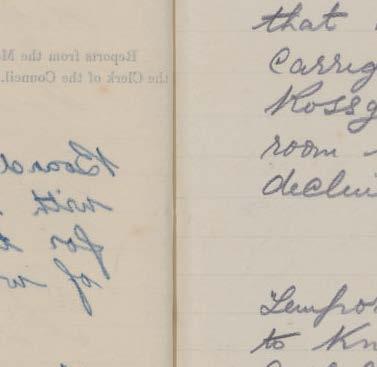 Reports from the M
the Clerk of the Council.
Board
with
for
of w
that
Carrig
Rossg
room
declin
Tempo
to Kn